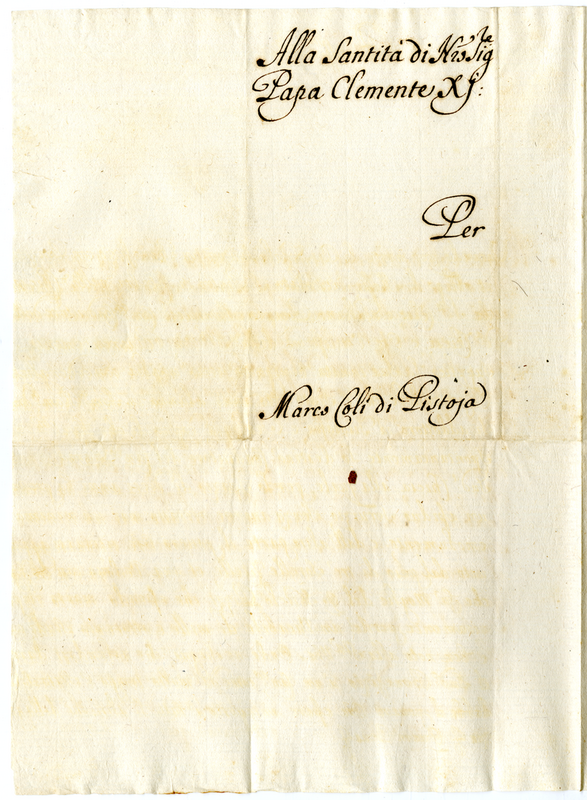 Alla Santità di Nro Sigre
Papa Clemente XI:
Per
Marco Coli di Pistoja